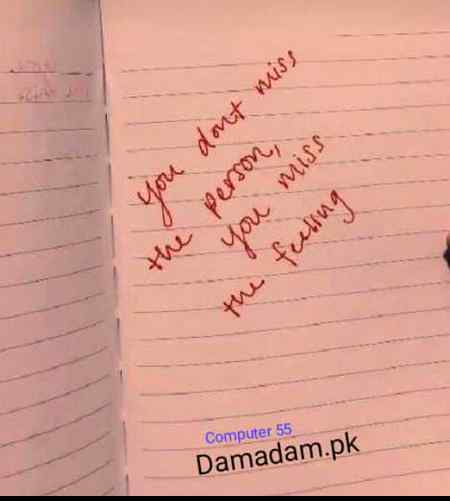 you dont miss
the person,
you miss
the feeling
Computer 55
Damadam.pk